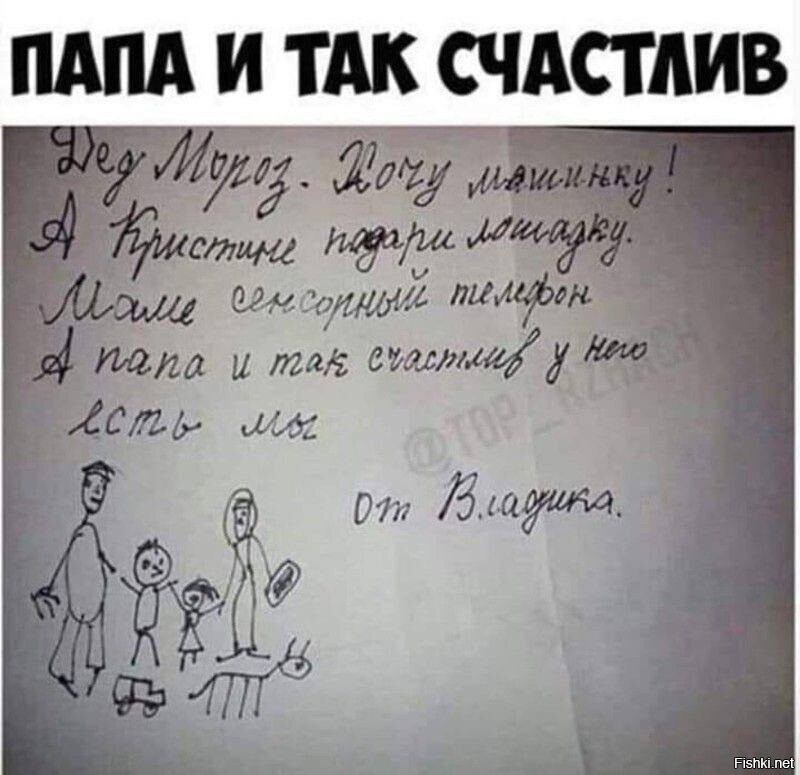 ПАПА И ТАК СЧАСТЛИВ
Дед Мороз. Хочу машинку!
А Кристине подари лошадку.
Маме сенсорный телефон
А папа и так счастлив у него
есть мы
от Владика.
@TOP_RZHACH
Fishki.net